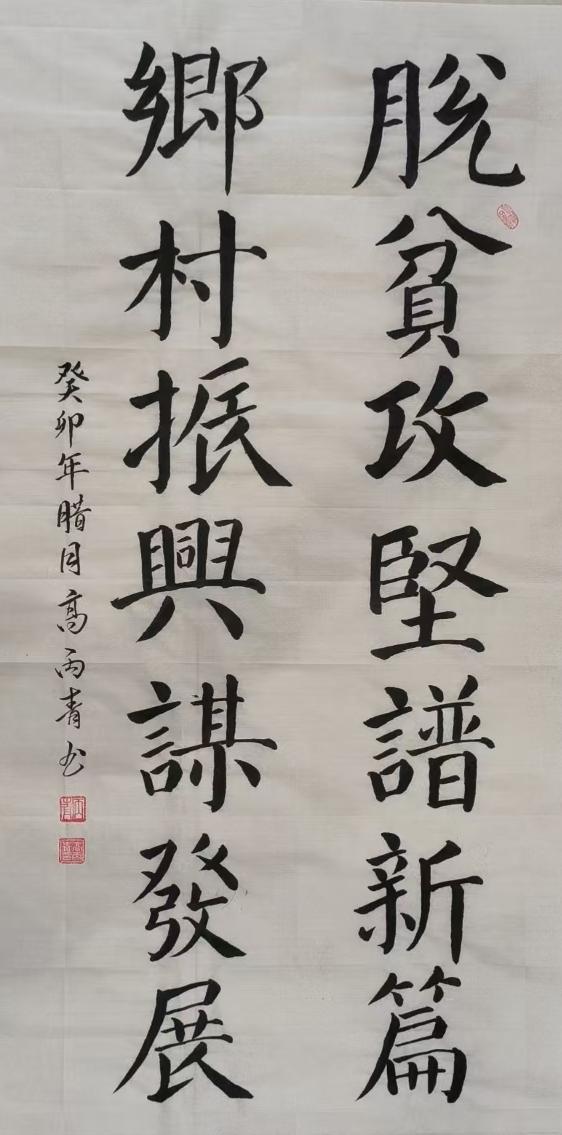 脱貧攻堅譜新篇
鄉村振興謀發展
癸卯年腊月高丙青书